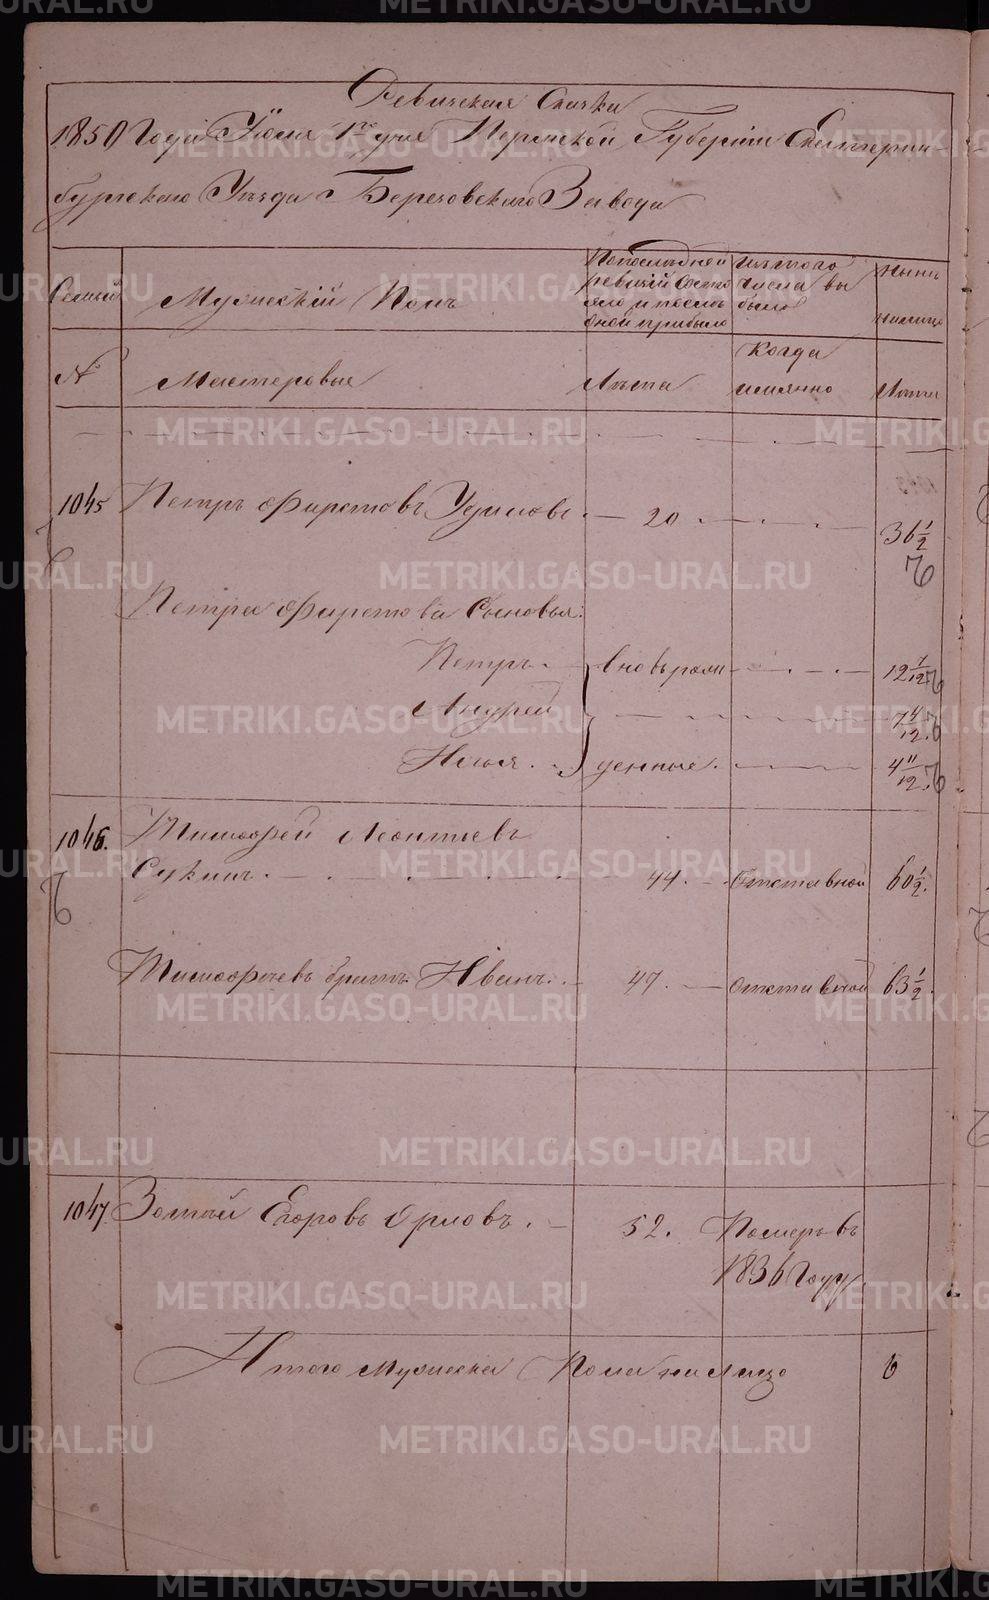 Ревизская Сказка
1850 Года Июля 1го дня Пермской Губернiи Екатерин-
бургского Уѣзда Березовского Завода
Семьи
Мужескiй Полъ
По последней
ревизiй состо
яло и после
оной прибыло
Изъ того
числа вы
было
Нынѣ
налицо
№
Мастеровые
Лѣта
Когда
имянно
Лѣта
1045 Петръ Фирстовъ 20 36 1/2
Петра Фирстова Сыновья:
Петръ вновь рож 12 7/12
Андрей 7 4/12
Илья денные 4 11/12
1046. Тимофей Леонтьевъ
Сукинъ 44. Отставной 60 1/2.
Тимофеевъ братъ Иванъ 47. Отставной 63 1/2.
1047 Зотѣй Егоровъ Орловъ. 52. Померъ въ
1836 году
Итого мужеска Пола на лицо 6
METRIKI.GASO-URAL.RU